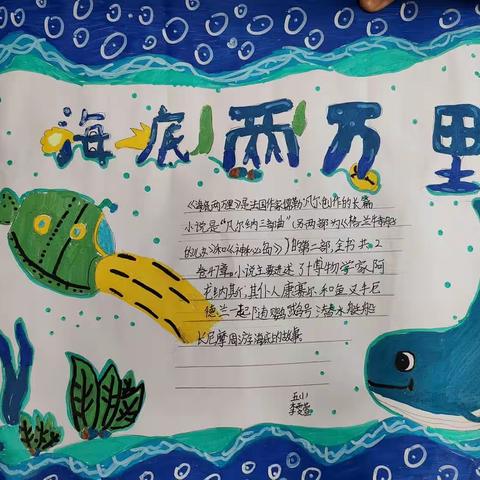 海底两万里
《海底两万里》是法国作家儒勒·凡尔创作的长篇
小说是"凡尔纳三部曲"(另两部为《格兰特船长
的儿女》和《神秘岛》)的第二部,全书共2
卷47章。小说主要讲述了博物学家阿
龙纳斯,其仆人康塞尔和鱼叉手尼
德兰一起随鹦鹉螺号潜水艇艇
长尼摩周游海底的故事
五小